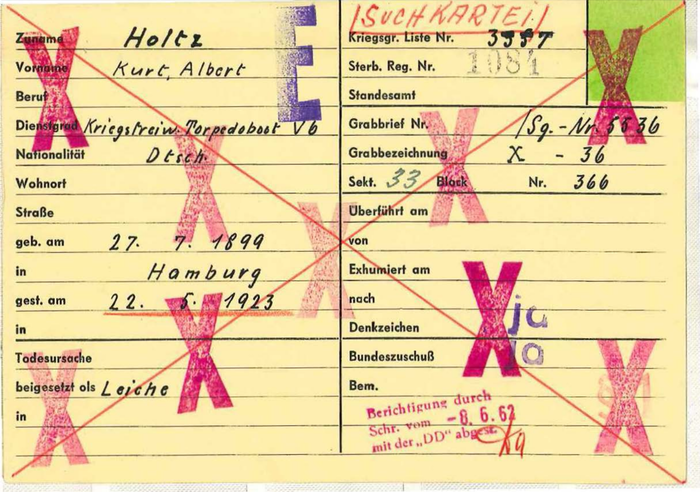 Zuname Holtz
Vorname Kurt, Albert
Beruf
Dienstgrad Kriegsfreiw. Torpedoboot V6
Nationalität Dtsch.
Wohnort
Straße
geb. am 27. 7. 1899
in Hamburg
gest. am 22. 5. 1923
in
Todesursache
beigesetzt als Leiche
in
E
/SUCHKARTEI/
Kriegsgr. Liste Nr.
Sterb. Reg. Nr. 1081
Standesamt
Grabbrief Nr. /Sg.-Nr. 5536
Grabbezeichnung X - 36
Sekt. 33 Block Nr. 366
Überführt am
von
Exhumiert am
nach
Denkzeichen ja
Bundeszuschuß ja
Bem.
Berichtigung durch
Schr. vom -8.6.62
mit der „DD" abgest.
X
X
X
X
X
X
X
X
X